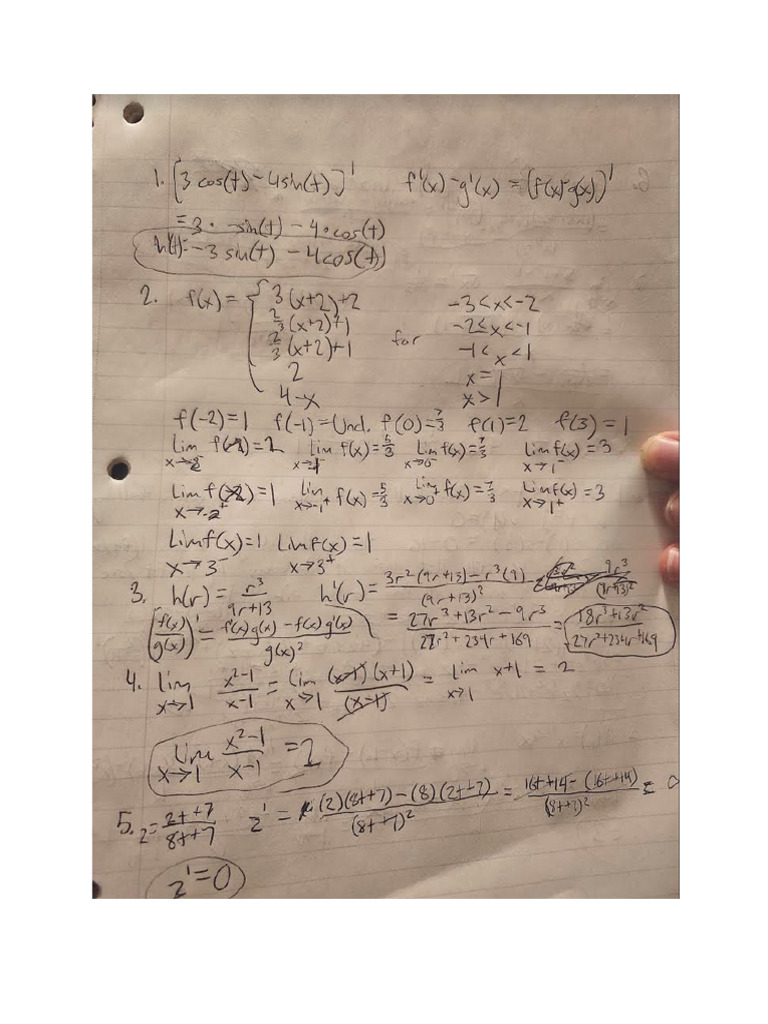 1. [3 cos(t) - 4 sin(t)]' f'(x) - g'(x) = (f(x) - g(x))'
= 3 · -sin(t) - 4 · cos(t)
h'(t) = -3 sin(t) - 4 cos(t)
2. f(x) = { 3(x+2)+2 -3<x<-2
2/3(x+2)+1 -2≤x<-1
2/3(x+2)+1 for -1<x<1
2 x=1
4-x x>1
f(-2)=1 f(-1)=Und. f(0)=7/3 f(1)=2 f(3)=1
Lim x→-2⁻ f(x)=2 Lim x→-1⁻ f(x)=5/3 Lim x→0⁻ f(x)=7/3 Lim x→1⁻ f(x)=3
Lim x→-2⁺ f(x)=1 Lim x→-1⁺ f(x)=5/3 Lim x→0⁺ f(x)=7/3 Lim x→1⁺ f(x)=3
Lim x→3⁻ f(x)=1 Lim x→3⁺ f(x)=1
3. h(r) = r³/(9r+13) h'(r) = (3r²(9r+13) - r³(9))/(9r+13)² 9r³/(9r+13)²
(f(x)/g(x))' = (f'(x)g(x) - f(x)g'(x))/g(x)² = (27r³+13r²-9r³)/(27r²+234r+169) = (18r³+13r²)/(27r²+234r+169)
4. Lim x→1 (x²-1)/(x-1) = Lim x→1 (x-1)(x+1)/(x-1) = Lim x→1 x+1 = 2
Lim x→1 (x²-1)/(x-1) = 2
5. z = (2t+7)/(8t+7) z' = ((2)(8t+7) - (8)(2t+7))/(8t+7)² = (16t+14 - (16t+14))/(8t+7)² = 0
z' = 0